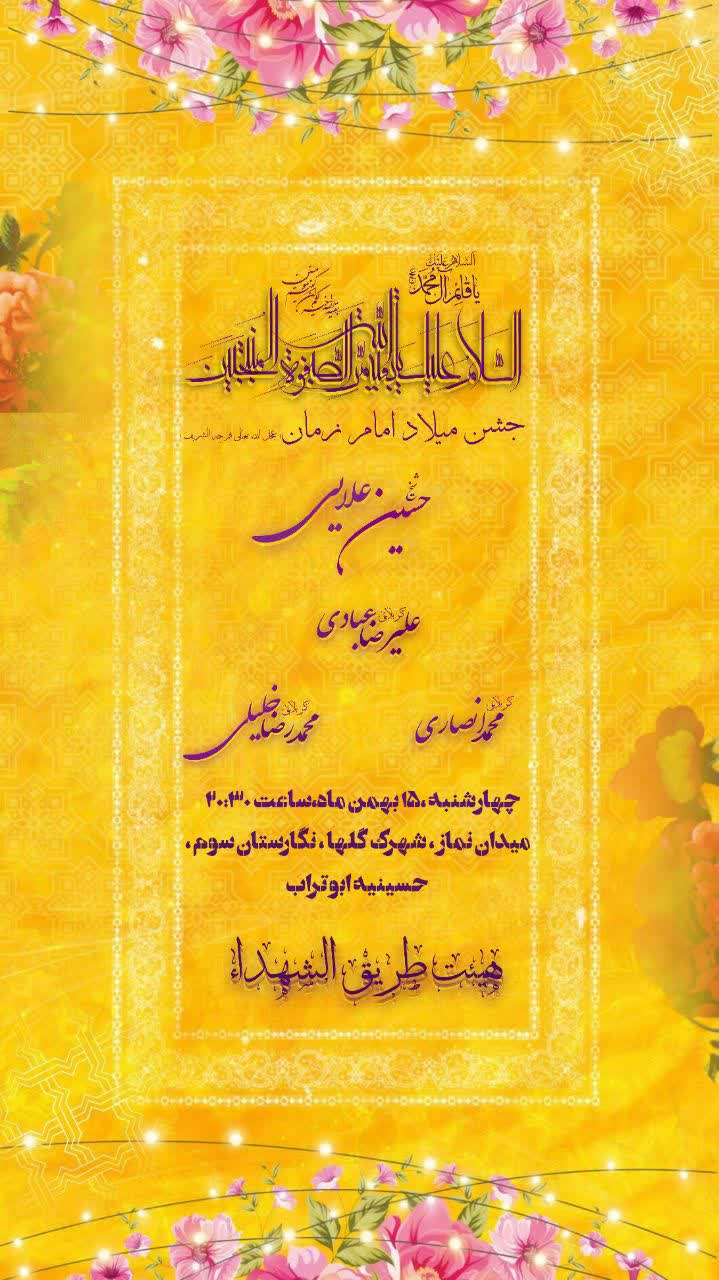 السلام علیک
یا قائم آل محمد
السلام علیک یا بقیة الله من الصفوة المنتجبین
جشن میلاد امام زمان عجل الله تعالی فرجه الشریف
شیخ حسین علایی
کربلایی علیرضا عبادی
کربلایی محمد انصاری
کربلایی محمدرضا خلیلی
چهارشنبه ،۱۵ بهمن ماه،ساعت ۲۰:۳۰
میدان نماز ، شهرک گلها ، نگارستان سوم ،
حسینیه ابوتراب
هیئت طریق الشهداء